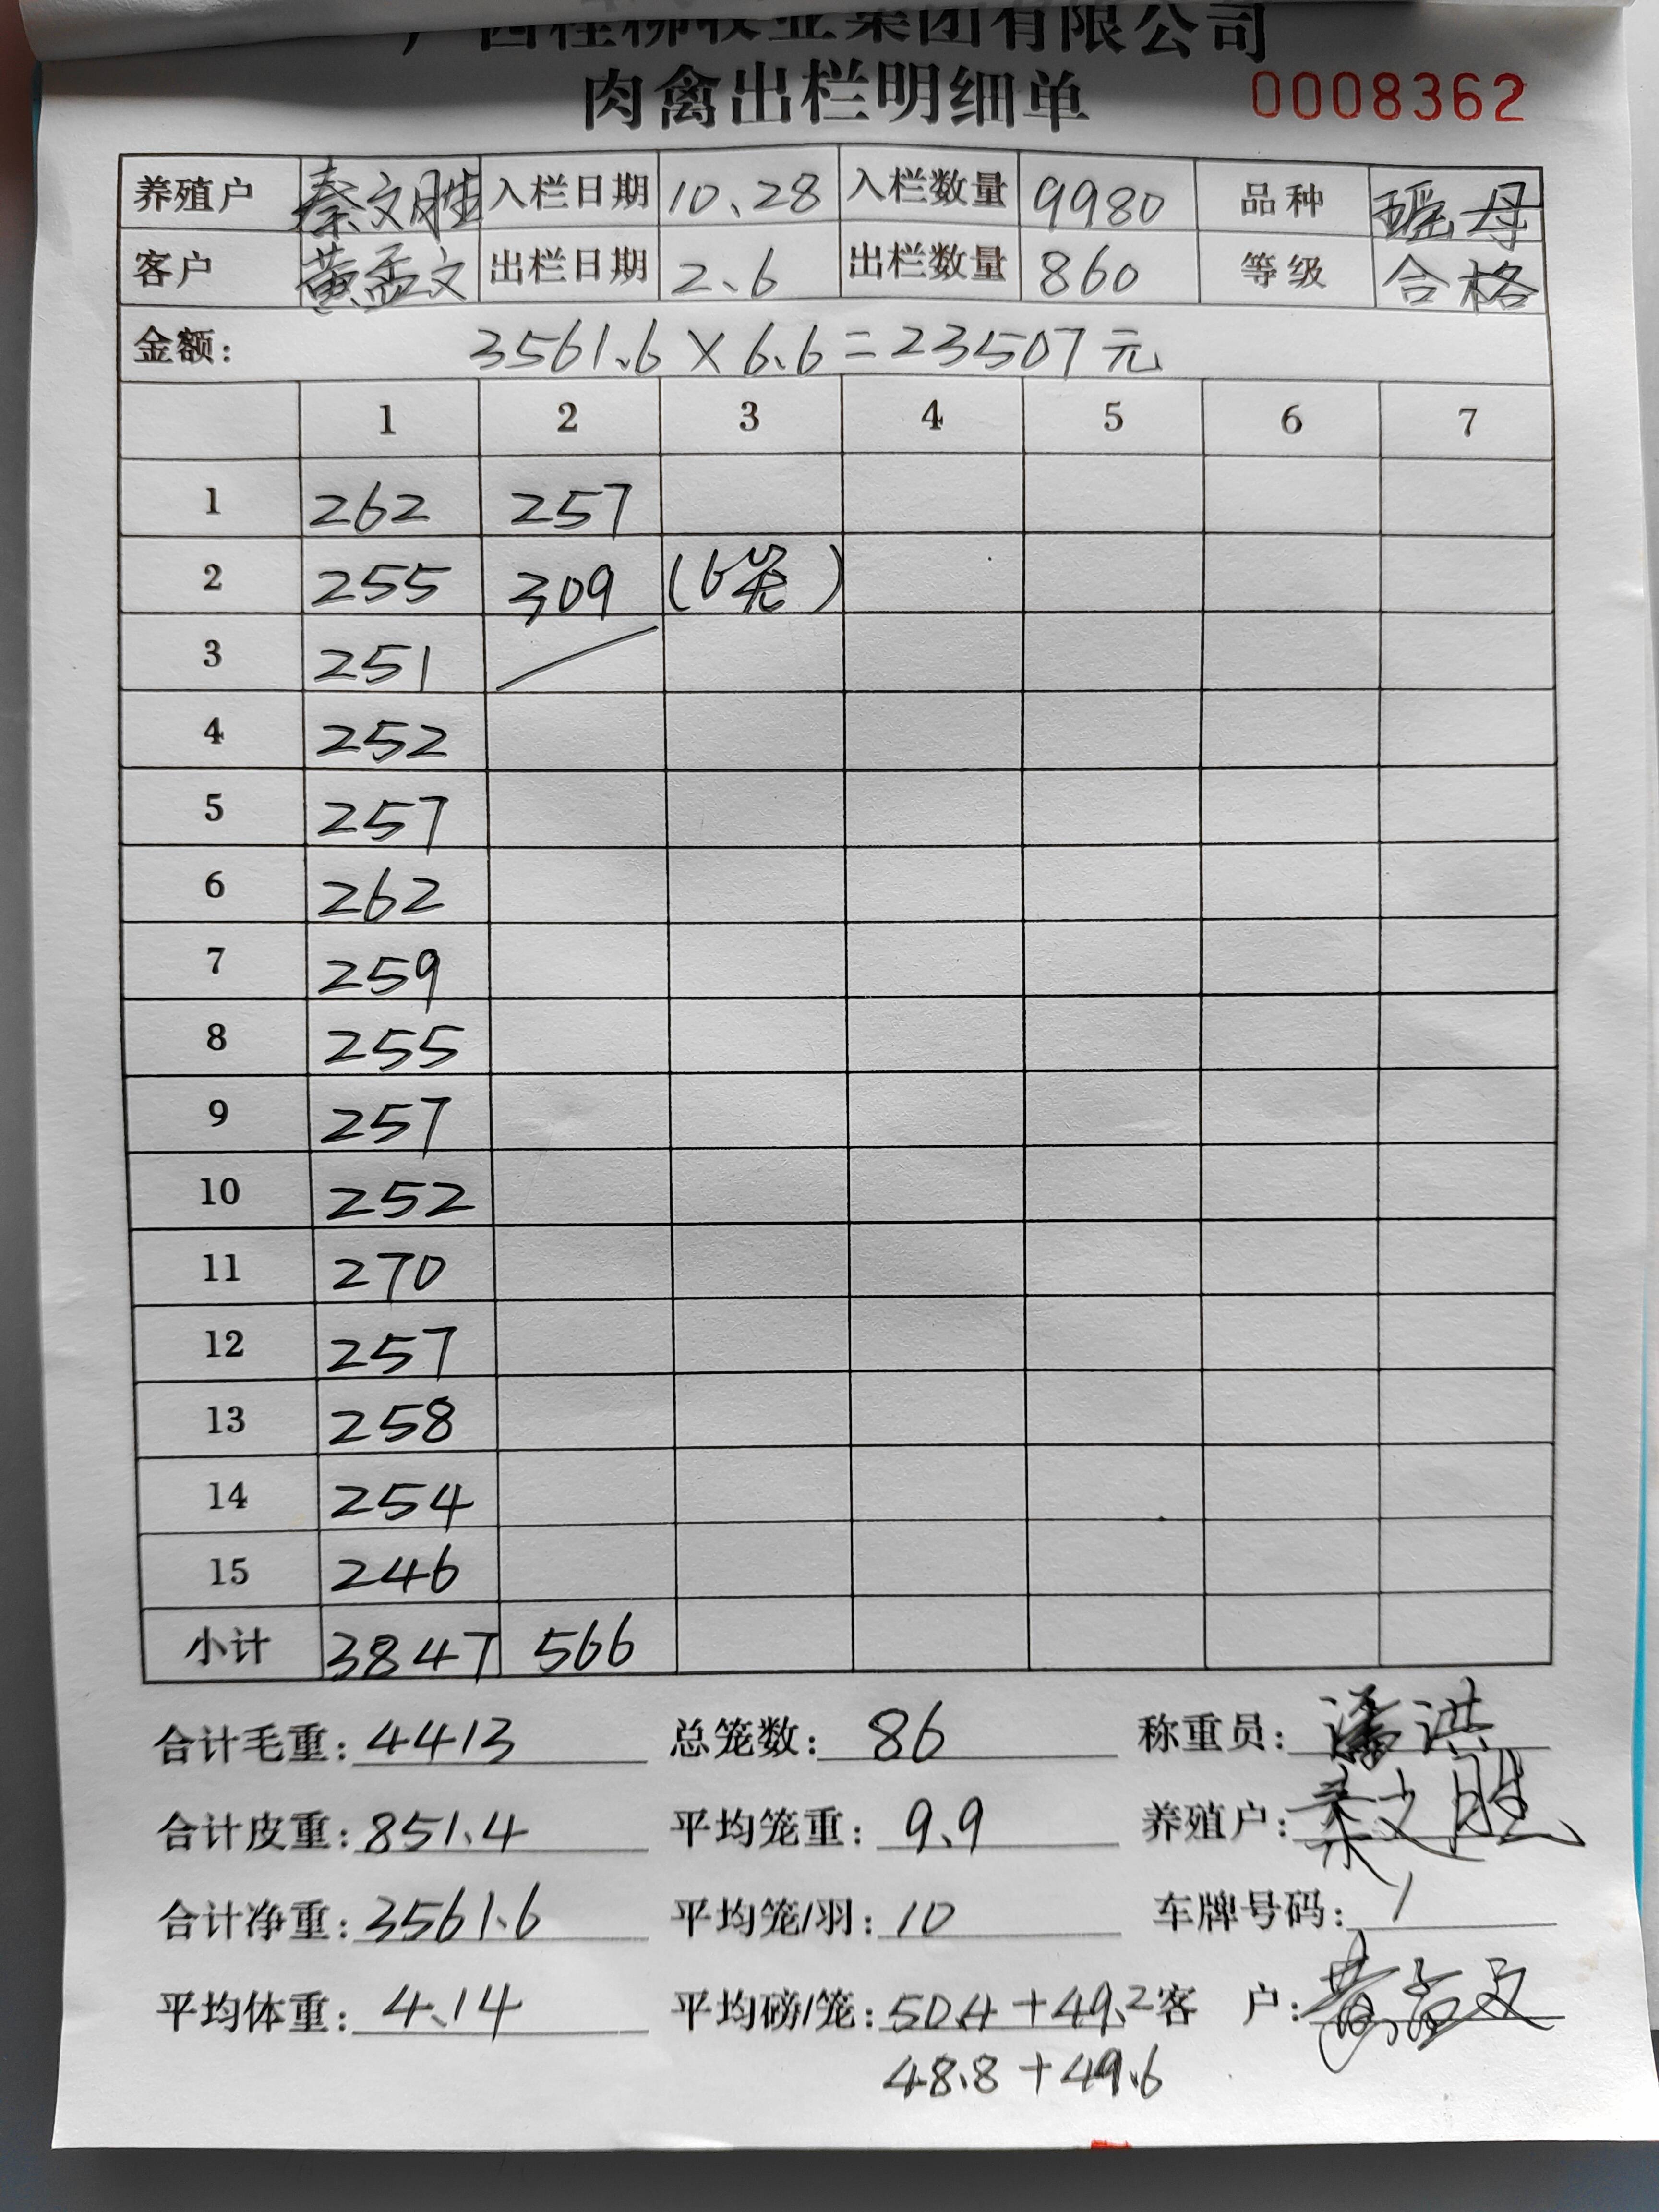 广西桂柳牧业集团有限公司
肉禽出栏明细单 0008362
养殖户 秦文胜 入栏日期 10.28 入栏数量 9980 品种 瑶母
客户 黄孟文 出栏日期 2.6 出栏数量 860 等级 合格
金额: 3561.6×6.6=23507元
1 2 3 4 5 6 7
1 262 257
2 255 309 (6笼)
3 251
4 252
5 257
6 262
7 259
8 255
9 257
10 252
11 270
12 257
13 258
14 254
15 246
小计 3847 566
合计毛重: 4413 总笼数: 86 称重员: 潘洪
合计皮重: 851.4 平均笼重: 9.9 养殖户: 秦文胜
合计净重: 3561.6 平均笼/羽: 10 车牌号码: /
平均体重: 4.14 平均磅/笼: 50.4+49.2 客 户: 黄孟文
48.8+49.6